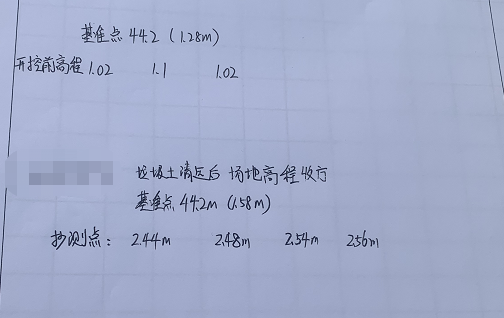 基准点 44.2 (1.28m)
开挖前高程 1.02 1.1 1.02
垃圾土清运后 场地高程收方
基准点 44.2m (1.58m)
抄测点: 2.44m 2.48m 2.54m 2.56m